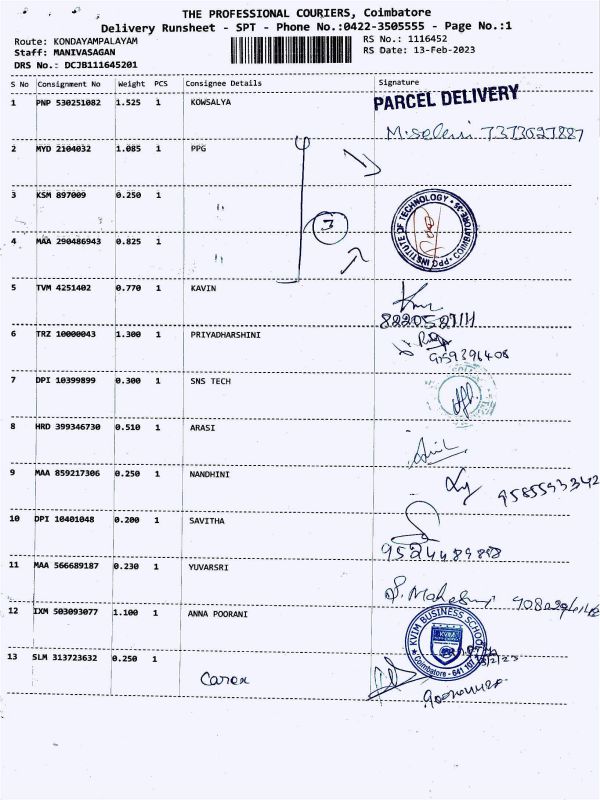 THE PROFESSIONAL COURIERS, Coimbatore
Delivery Runsheet - SPT - Phone No.:0422-3505555 - Page No.:1
Route: KONDAYAMPALAYAM
RS No.: 1116452
Staff: MANIVASAGAN
RS Date: 13-Feb-2023
DRS No.: DCJB111645201
S No Consignment No Weight PCS Consignee Details Signature
1 PNP 530251082 1.525 1 KOWSALYA PARCEL DELIVERY
2 MYD 2104032 1.085 1 PPG
3 KSM 897009 0.250 1 "
INSTITUTE OF TECHNOLOGY
PPG COIMBATORE-35
4 MAA 290486943 0.825 1 "
5 TVM 4251402 0.770 1 KAVIN
6 TRZ 10000043 1.300 1 PRIYADHARSHINI
7 DPI 10399899 0.300 1 SNS TECH
8 HRD 399346730 0.510 1 ARASI
9 MAA 859217306 0.250 1 NANDHINI
9585593342
10 DPI 10401048 0.200 1 SAVITHA
11 MAA 566689187 0.230 1 YUVARSRI
12 IXM 503093077 1.100 1 ANNA POORANI
KVIM BUSINESS SCHOOL
Coimbatore - 641 107
13 SLM 313723632 0.250 1